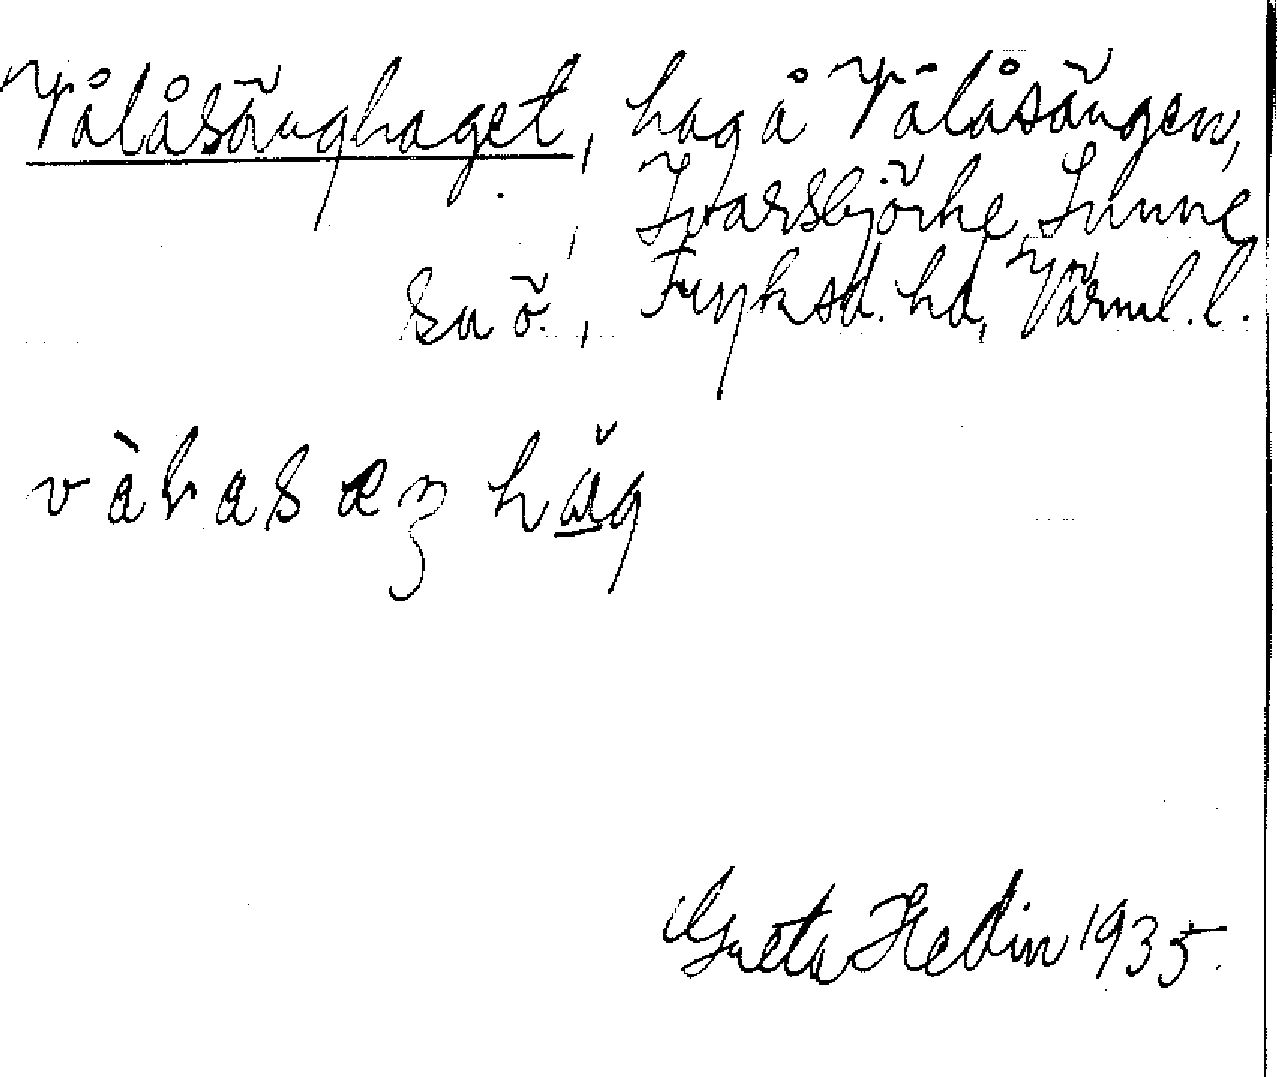 Vålåsänghaget, hag å Vålåsängen,
Ivarsbjörke, Sunne
sn ö., Fryksd. hd, Värml. l.
Greta Hedin 1935.